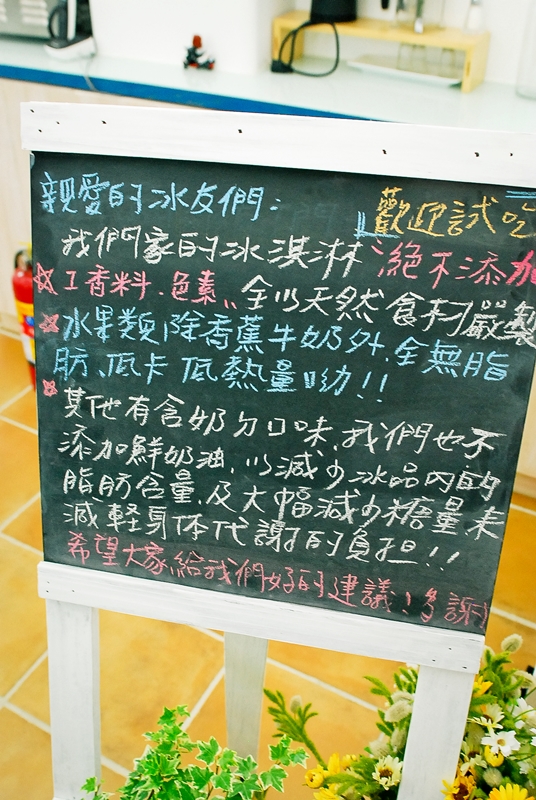 親愛的冰友們: 歡迎試吃
我們家的冰淇淋絕不添加
工香料、色素,,全以天然食材嚴製
水果類除香蕉牛奶外,全無脂
肪、低卡低熱量呦!!
其他有含奶分口味,我們也不
添加鮮奶油,以減少冰品內的
脂肪含量,及大幅減少糖量來
減輕身体代謝的負担!!
希望大家給我們好的建議!多謝